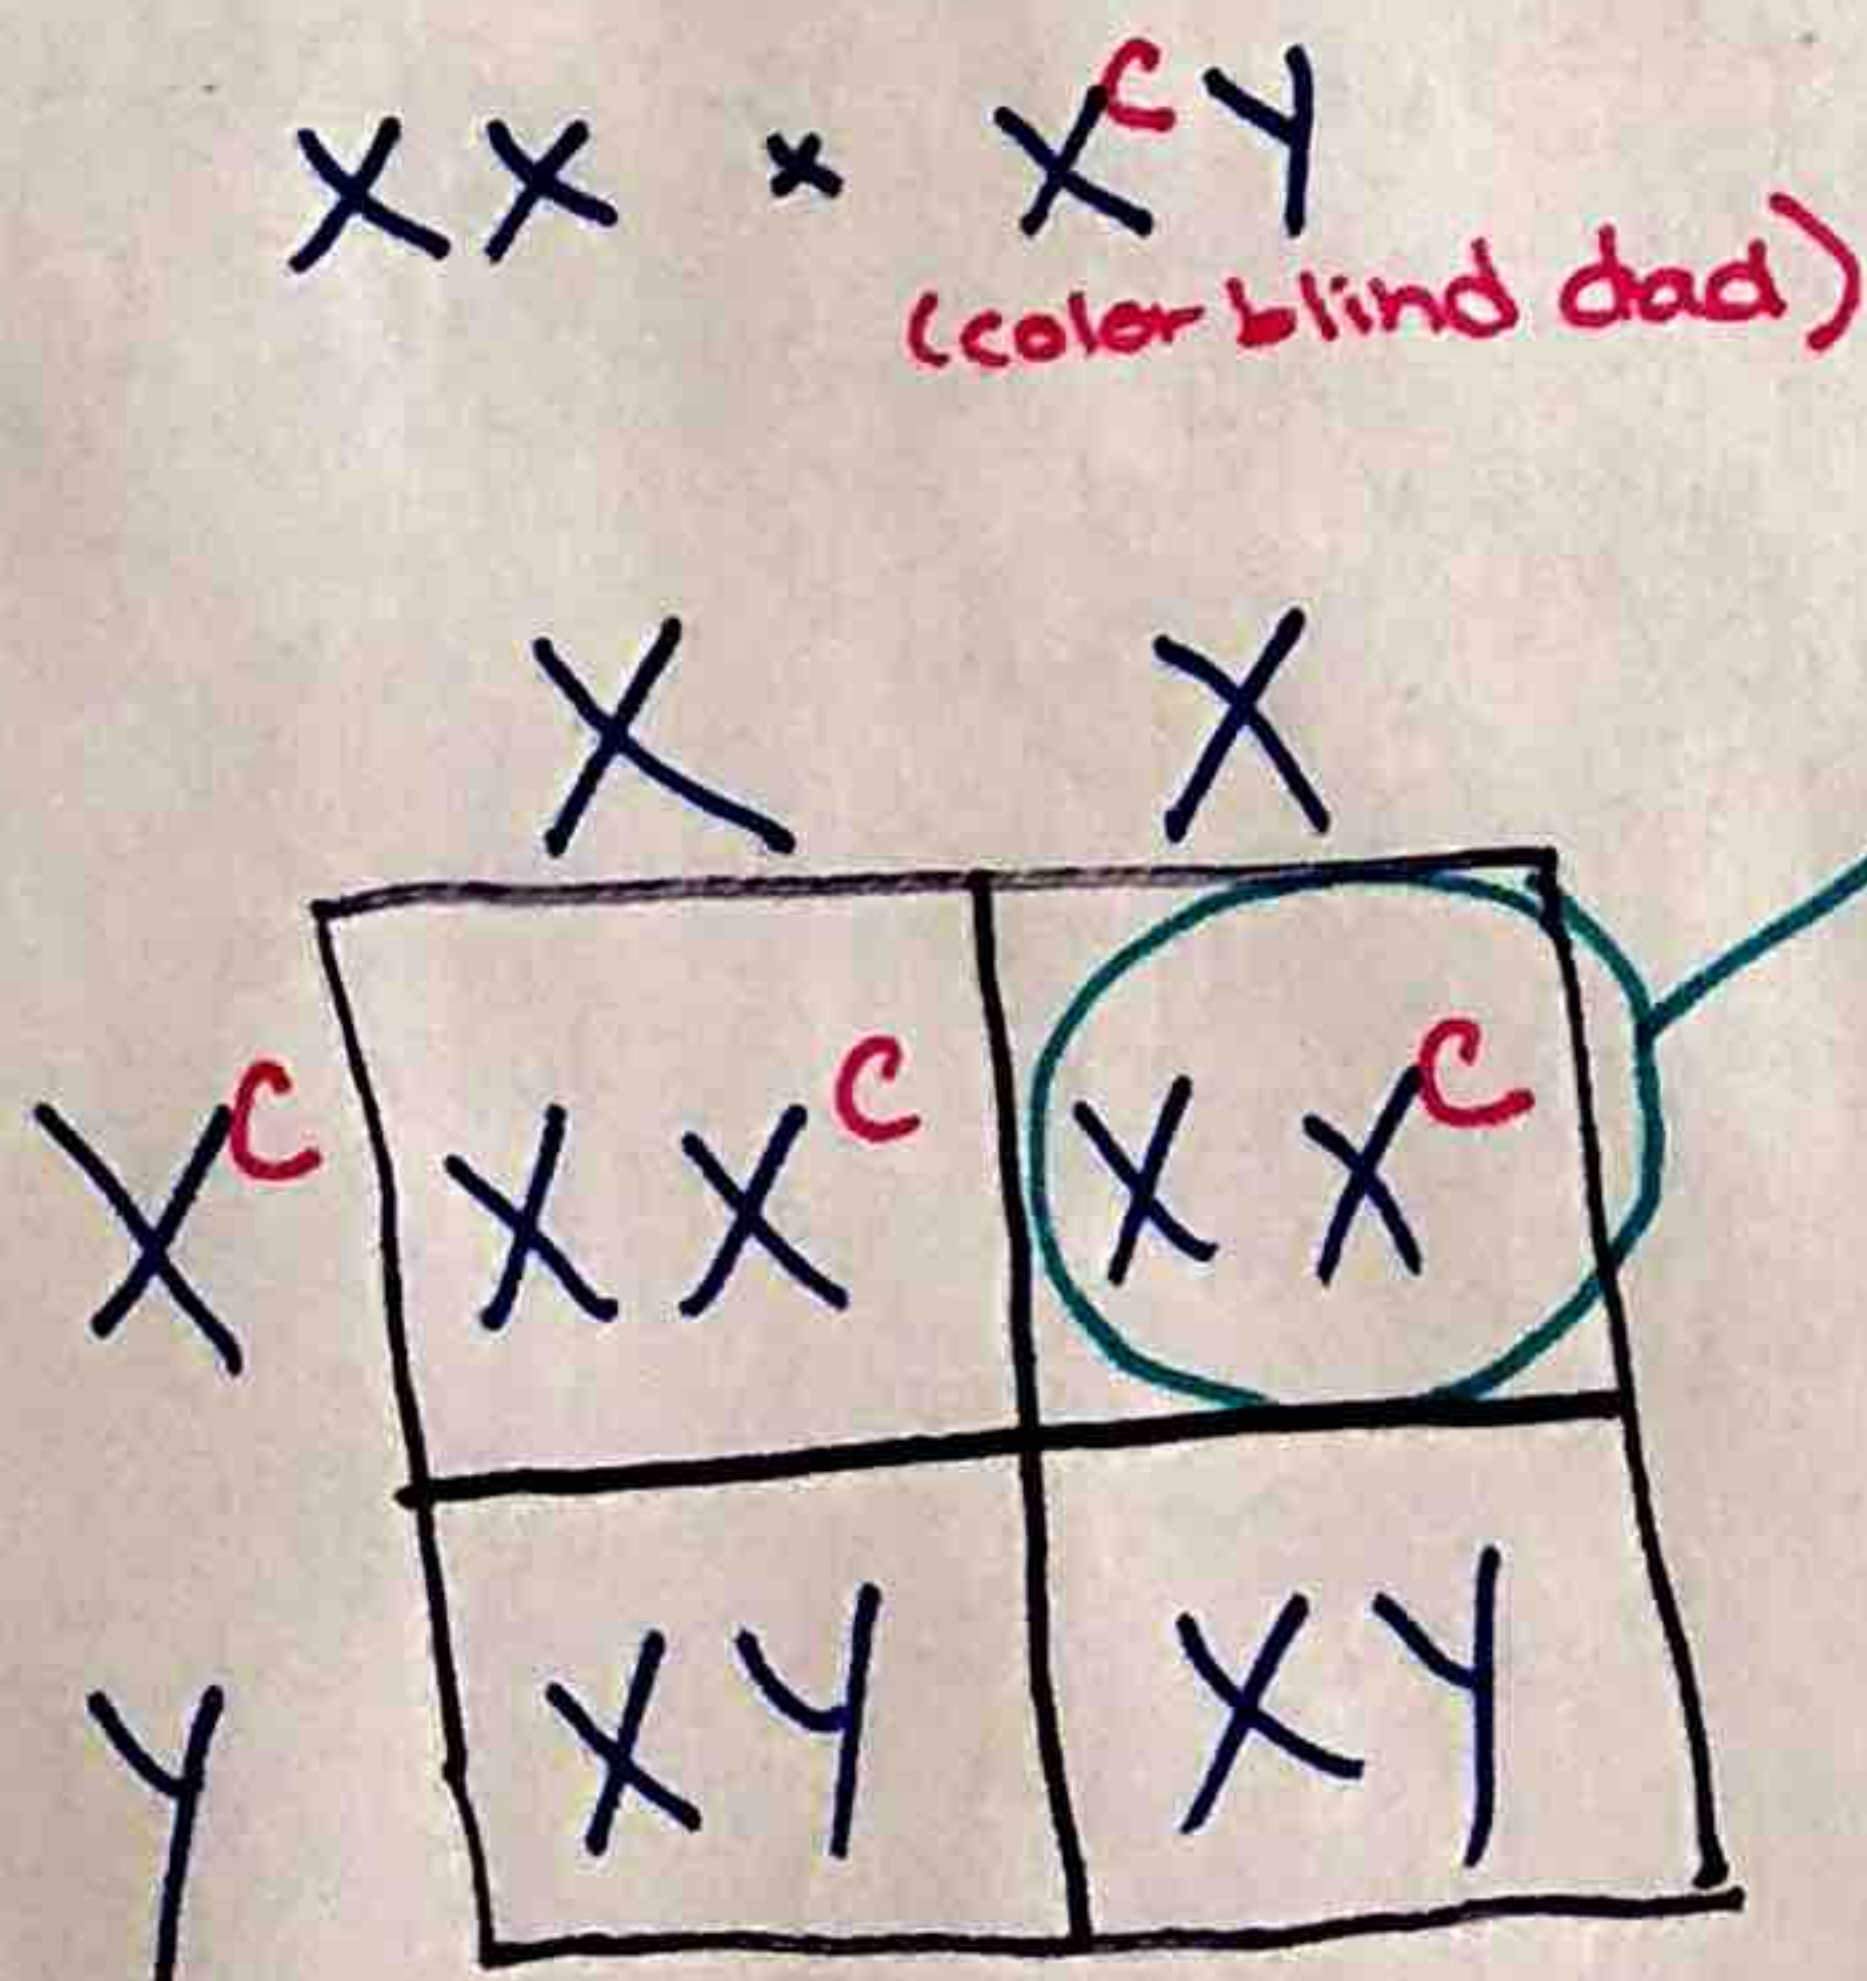 XX × XᶜY
(color blind dad)
X X
Xᶜ XXᶜ XXᶜ
Y XY XY